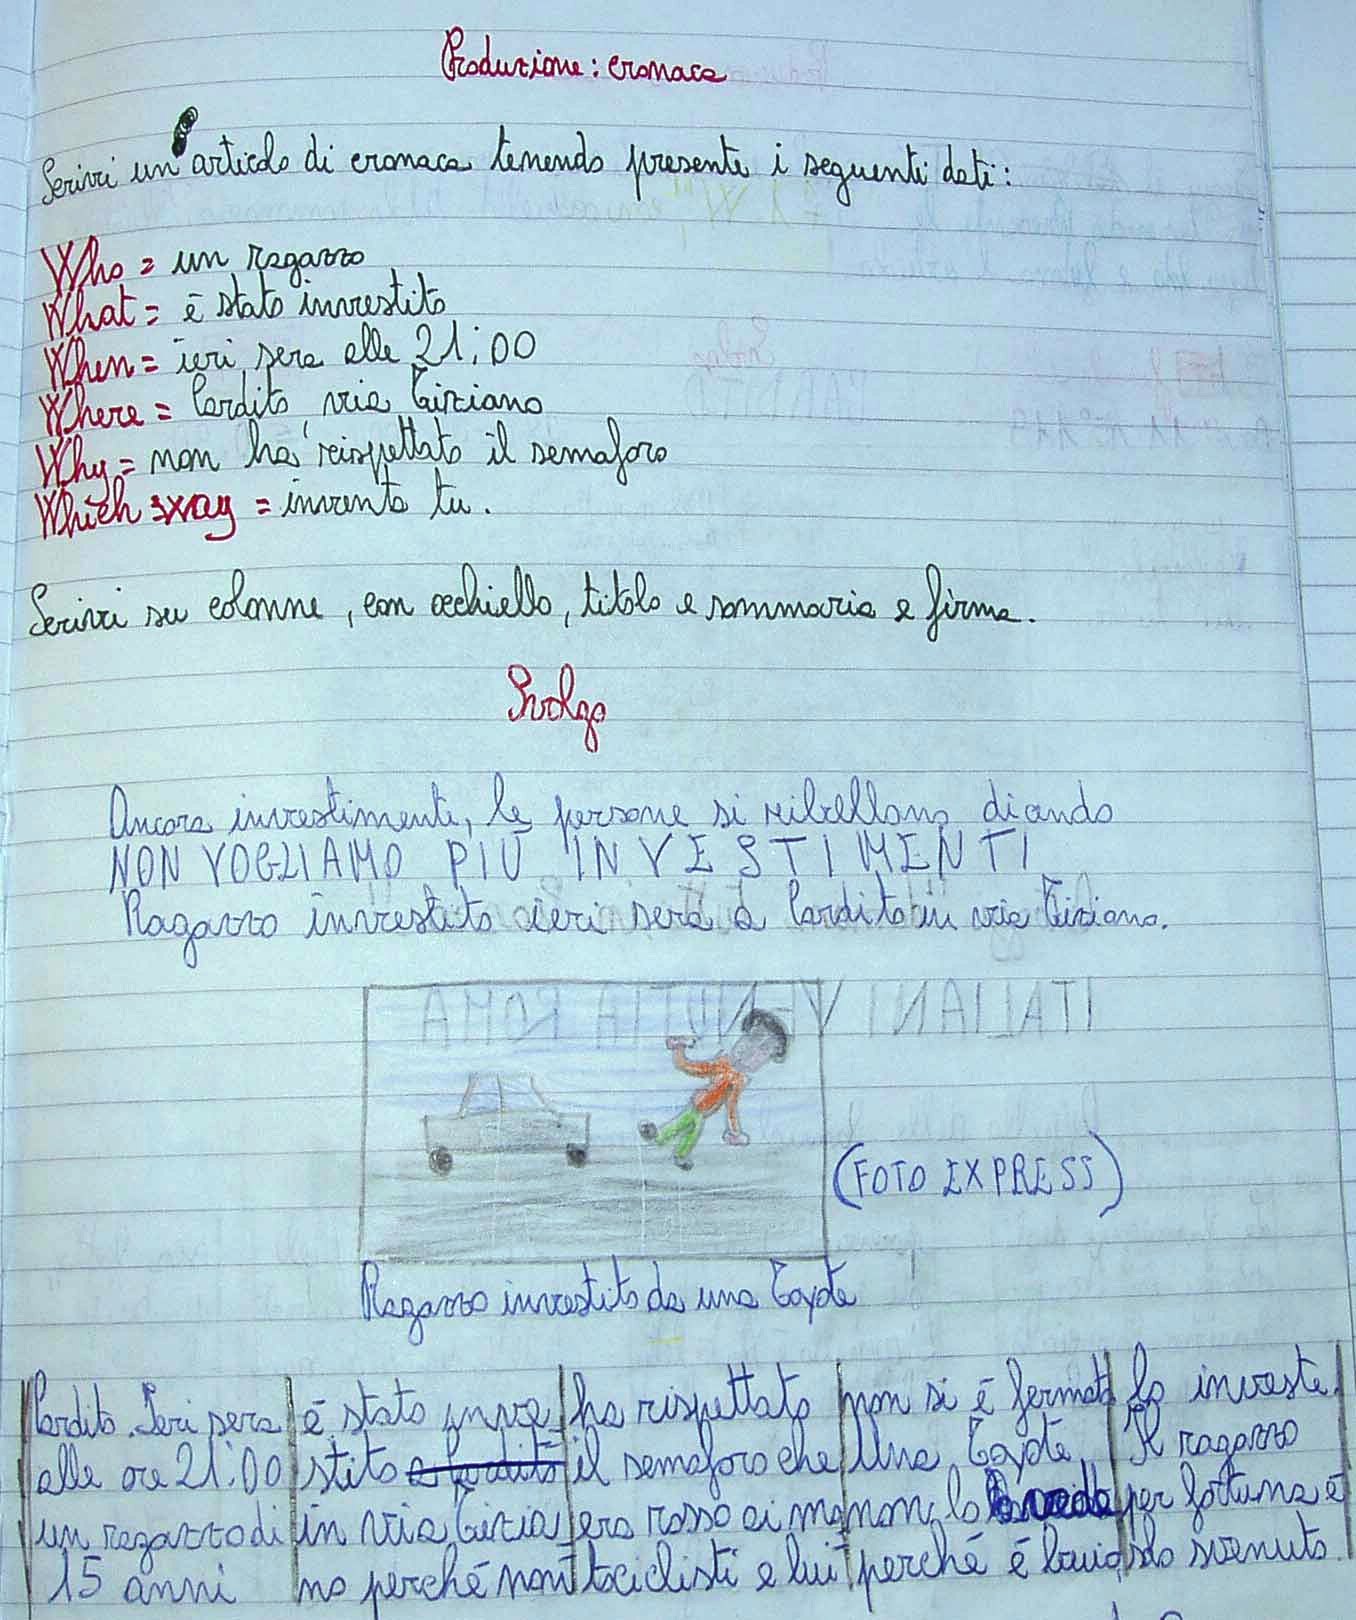 Produzione: cronaca
Scrivi un articolo di cronaca tenendo presente i seguenti dati:
Who = un ragazzo
What = è stato investito
When = ieri sera alle 21:00
Where = Lordito via Tiziano
Why = non ha rispettato il semaforo
Which way = inventa tu.
Scrivi su colonne, con occhiello, titolo e sommario e firma.
Svolgo
Ancora investimenti, le persone si ribellano dicendo
NON VOGLIAMO PIÙ INVESTIMENTI
Ragazzo investito ieri sera a Lordito in via Tiziano.
(FOTO EXPRESS)
Ragazzo investito da una Toyota
Lordito. Ieri sera
alle ore 21:00
un ragazzo di
15 anni
è stato inve
stito a Lordito
in via Tizia
no perché non
ha rispettato
il semaforo che
era rosso ai mo
tociclisti e lui
non si é fermato
Una Toyota
non lo vede
perché é buio,
lo investe.
Il ragazzo
per fortuna é
solo svenuto.